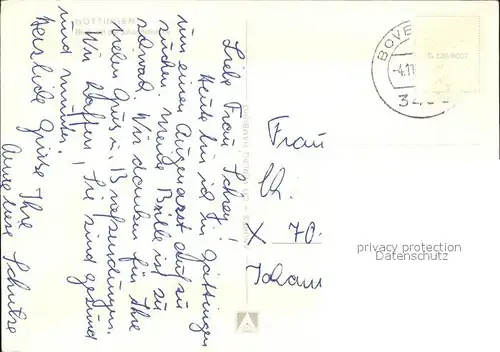 GÖTTINGEN
Liebe Frau Schrey!
Heute bin ich in Göttingen
um einen Augenarzt aufzu
suchen, meine Brille ist zu
schwach. Wir danken für Ihre
vielen Grüße u.
Wir hoffen, Sie sind gesund
und munter.
Herzliche Grüße Ihre
Anneliese Schulze
Frau
Ch.
X 70
Johann
BOVE
-4.11
34
privacy protection
Datenschutz